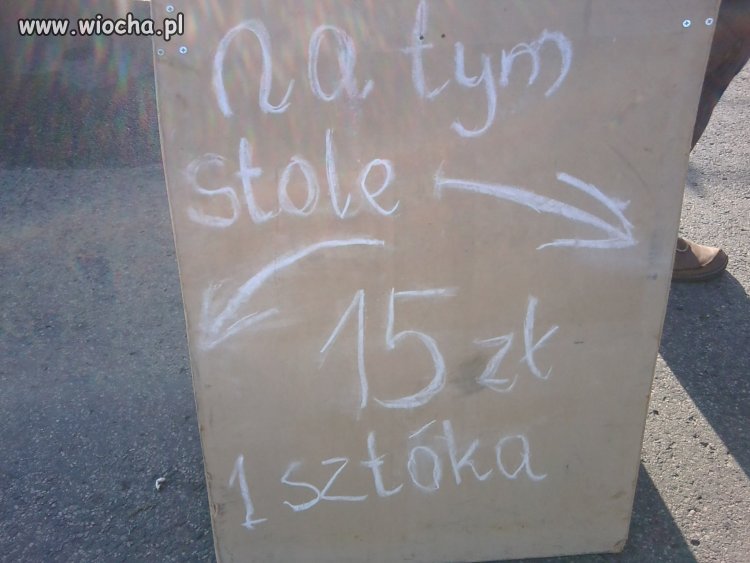 www.wiocha.pl
na tym
stole
15 zł
1 sztóka